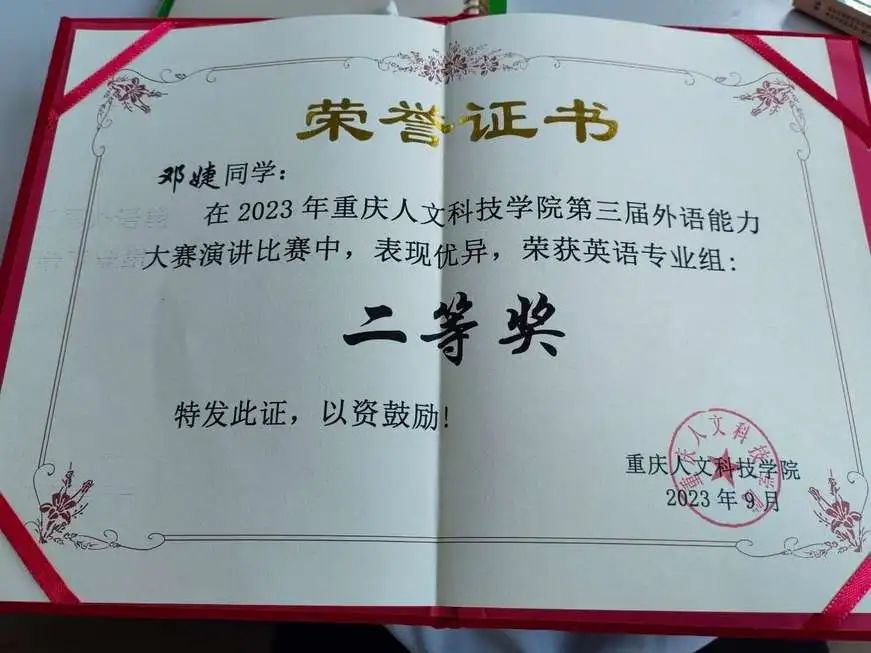 荣誉证书
邓婕同学：
在2023年重庆人文科技学院第三届外语能力
大赛演讲比赛中，表现优异，荣获英语专业组：
二等奖
特发此证，以资鼓励！
重庆人文科技学院
2023年9月
重庆人文科技学院